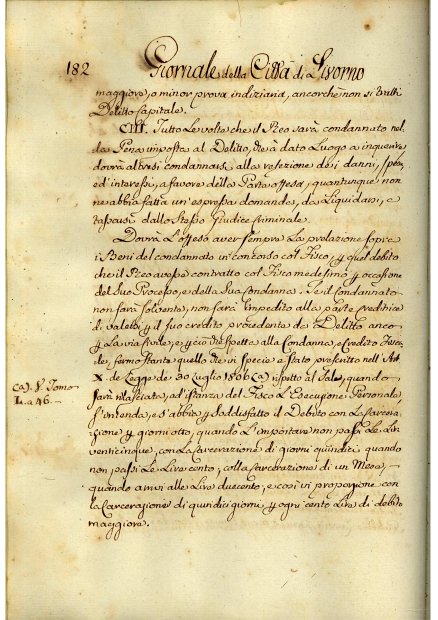 182
Giornale della Città di Livorno
maggiore, o minor prova indiziaria, ancorchè non si tratti
Delitto Capitale.
CIII. Tutte le volte che il Reo sarà condannato nel-
la Pena imposta al Delitto, che à dato Luogo a inquirere
dovrà altresì condannarsi alla refezione de i danni, spese
ed'interessi, a favore della Parte offesa, quantunque non
ne abbia fatta un'espressa domanda, da Liquidarsi, e
tassarsi dallo Stesso Giudice Criminale.
Dovrà L'offeso aver sempre La prelazione sopra
i Beni del condannato in concorso col Fisco, p quel debito
che il Reo avesse contratto col Fisco medesimo p occasione
del Suo Processo, e della Sua Condanna. Se il Condannato
non sarà Solvente, non sarà impedito alla parte creditrice
di valersi p il suo credito procedente da Delitto anco
p La via Civile; e p ciò che spetta alla Condanna, e Credito Fisca-
le, fermo Stante quello che in specie è Stato prescritto nell'Art.
X. de Legge de 30 Luglio 1786 (a) rispetto al Sale, quando
sarà rilasciata, ad'istanza del Fisco L'Esecuzione Personale,
s'intenda, e s'abbia p Soddisfatto il Debito con La Carcera-
zione p giorni otto, quando L'importare non passi Le Lire
venticinque, con La Carcerazione di giorni quindici quando
non passi Le Lire cento, colla Carcerazione di un Mese,
quando arrivi alle Lire duecento, e così in proporzione con
La Carcerazione di quindici giorni p ogni cento Lire di debito
maggiore.
(a). V. Tomo
I. a 46.